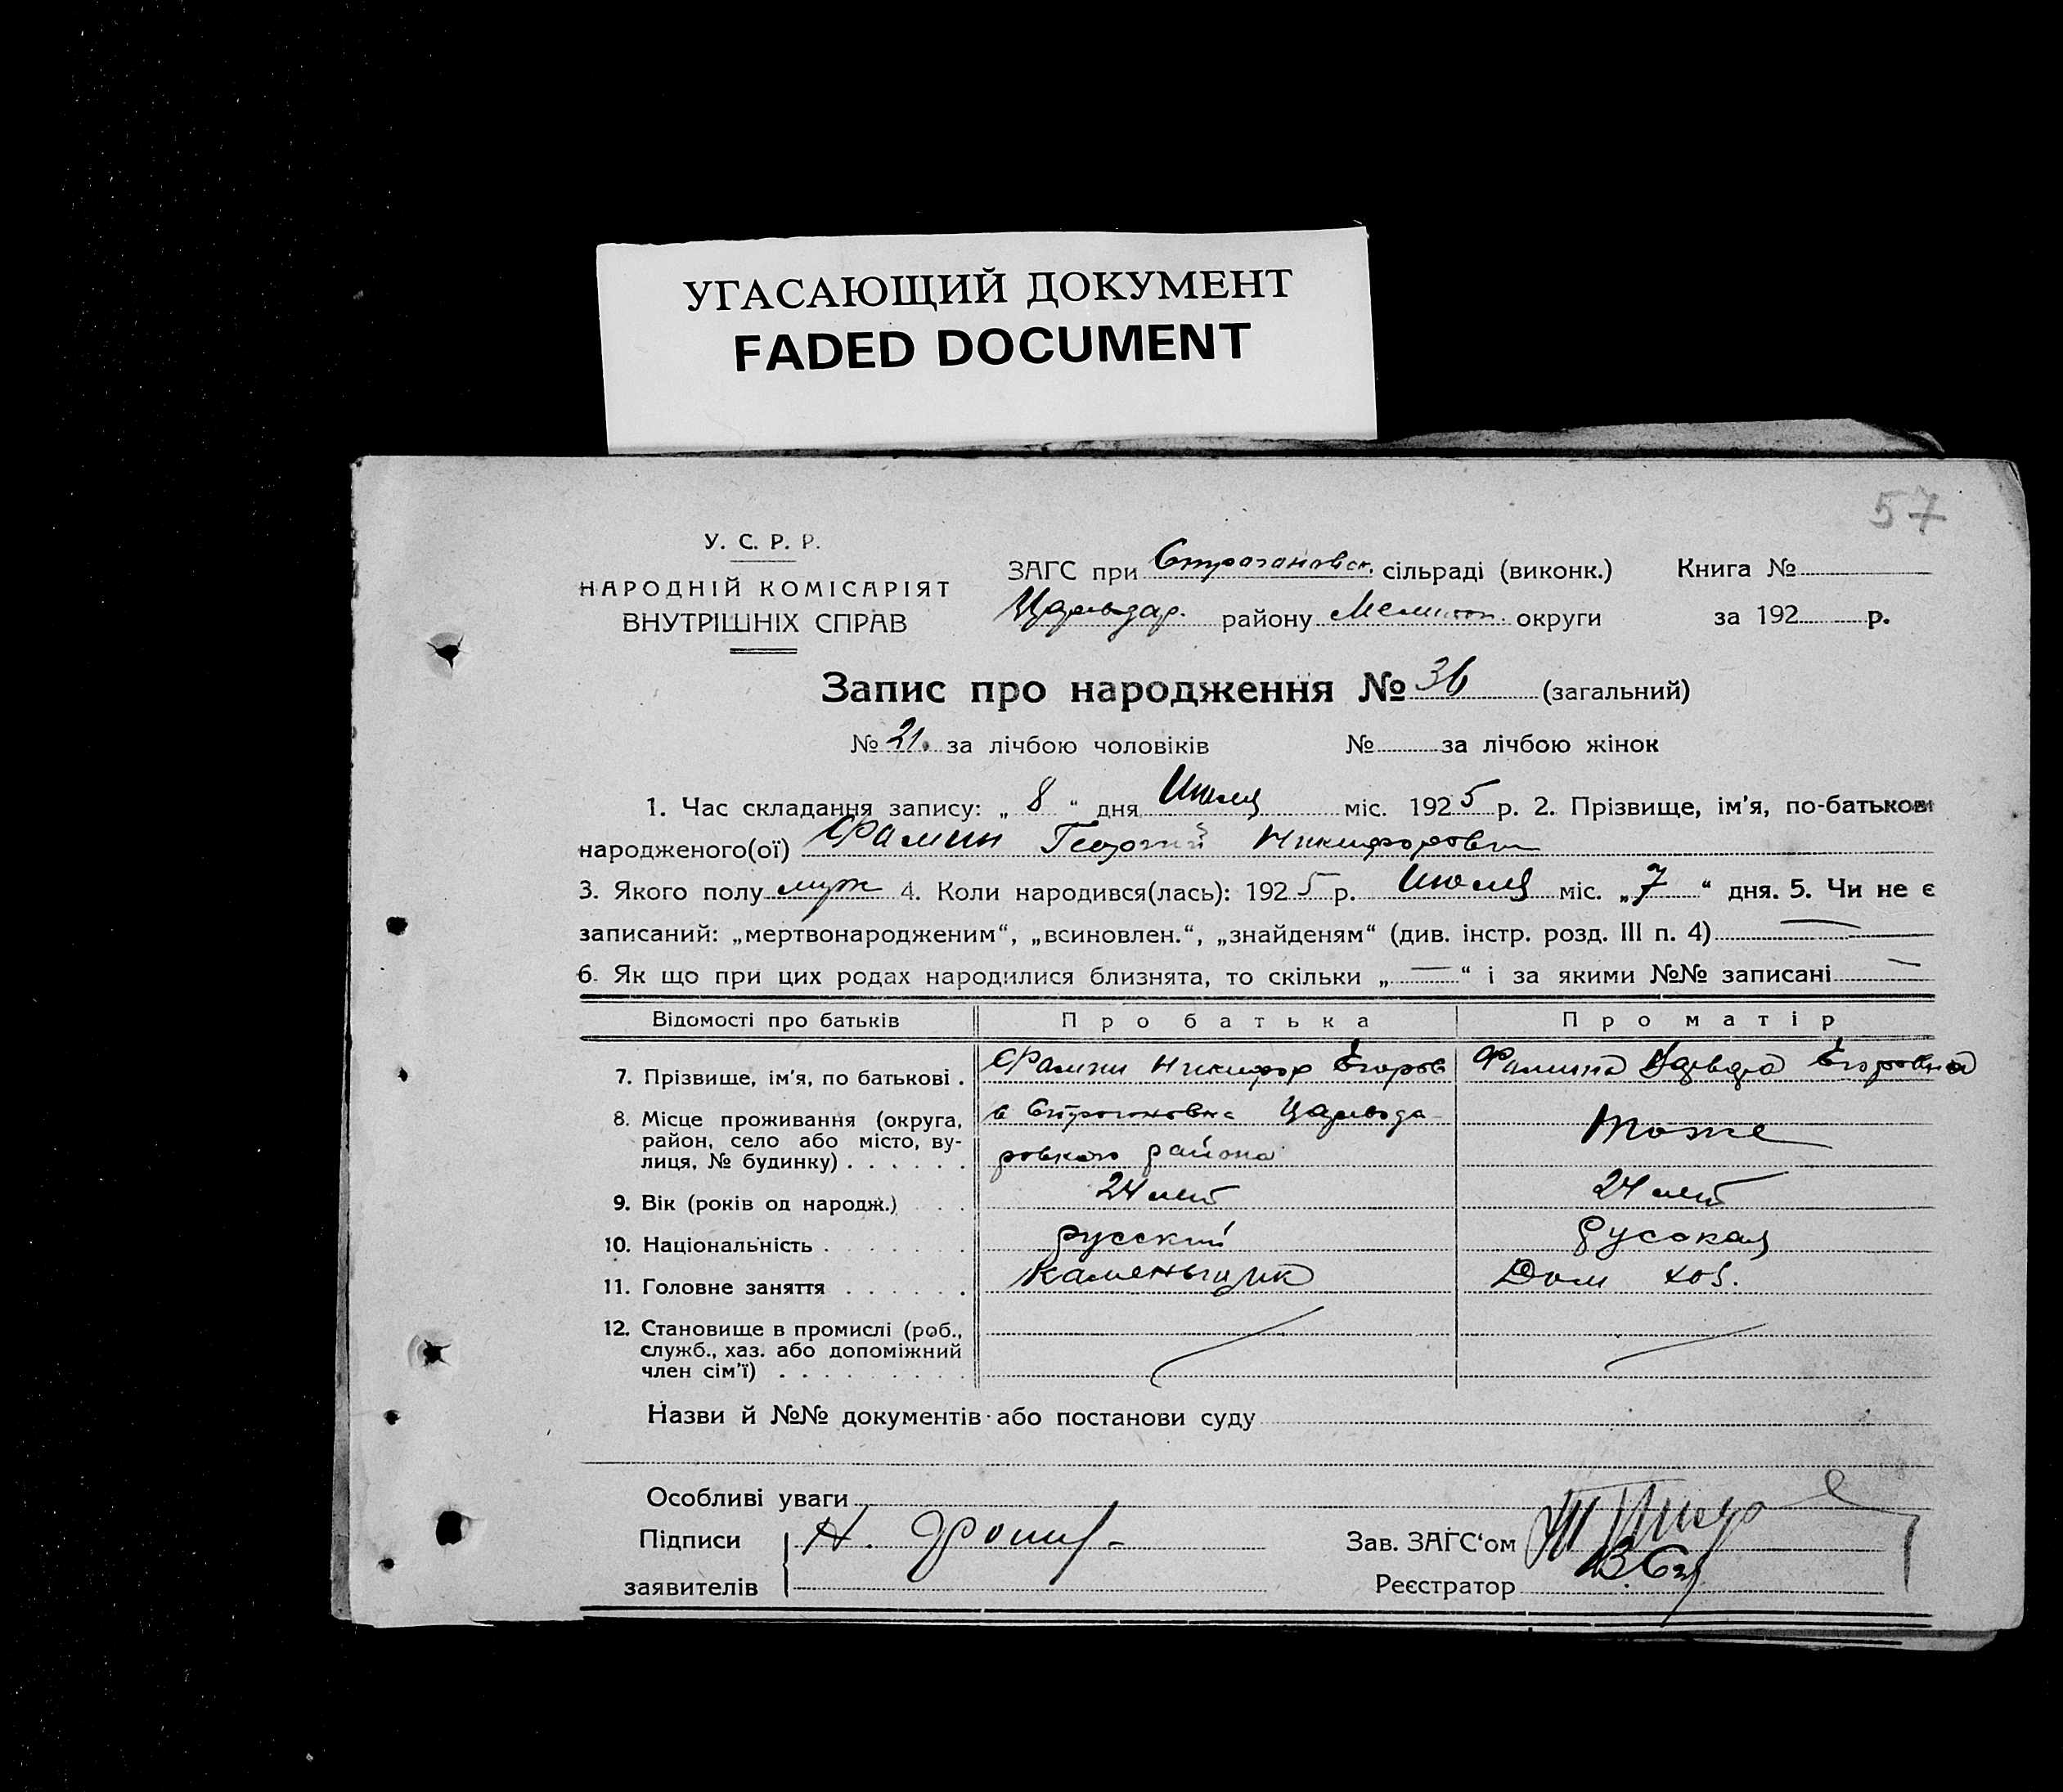 УГАСАЮЩИЙ ДОКУМЕНТ
FADED DOCUMENT
57
У. С. Р. Р.
НАРОДНІЙ КОМІСАРІЯТ
ВНУТРІШНІХ СПРАВ
ЗАГС при Строгановск. сільраді (виконк.) Книга №
Царьдар. району Мелитоп. округи за 192 р.
Запис про народження № 36 (загальний)
№ 21. за лічбою чоловіків № за лічбою жінок
1. Час складання запису: „ 8 “ дня Июля міс. 1925 р. 2. Прізвище, ім'я, по-батькові
народженого(ої) Фамин Георгий Никифорович
3. Якого полу муж 4. Коли народився(лась): 1925 р. Июля міс. „7“ дня. 5. Чи не є
записаний: „мертвонародженим“, „всиновлен.“, „знайденям“ (див. інстр. розд. III п. 4) —
6. Як що при цих родах народилися близнята, то скільки „ — “ і за якими №№ записані —
Відомості про батьків Про батька Про матір
7. Прізвище, ім'я, по батькові . Фамин Никифор Егоров Фамина Егоровна
8. Місце проживання (округа, в Строгоновке Царьвода
район, село або місто, ву- тоже
лиця, № будинку) . . . . . . ровского района
9. Вік (років од народж.) . . 24 лет 24 лет
10. Національність . . . . . . русский русская
11. Головне заняття . . . . . . Каменьщик Дом хоз.
12. Становище в промислі (роб.,
служб., хаз. або допоміжний
член сім'ї) . . . . . . . . .
Назви й №№ документів або постанови суду
Особливі уваги
Підписи Н. Зав. ЗАГС‘ом
заявителів Реєстратор